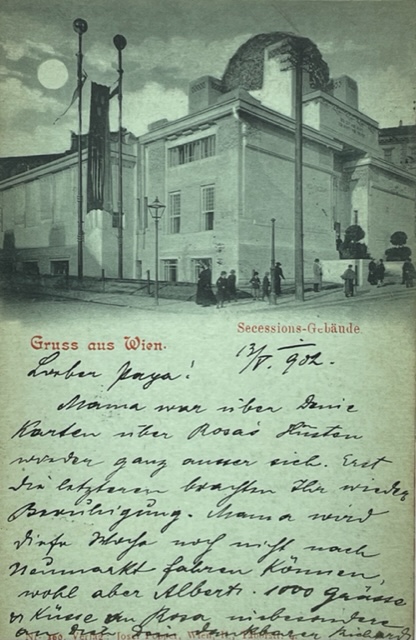 Secessions-Gebäude.
Gruss aus Wien.
13/V. 902.
Lieber Papa!
Mama war über Deine
Karten über Rosa's Husten
wieder ganz ausser sich. Erst
die letzteren brachten Ihr wieder
Beruhigung. Mama wird
diese Woche noch nicht nach
Neumarkt fahren können,
wohl aber Albert. 1000 Grüsse
u Küsse an Rosa insbesondere